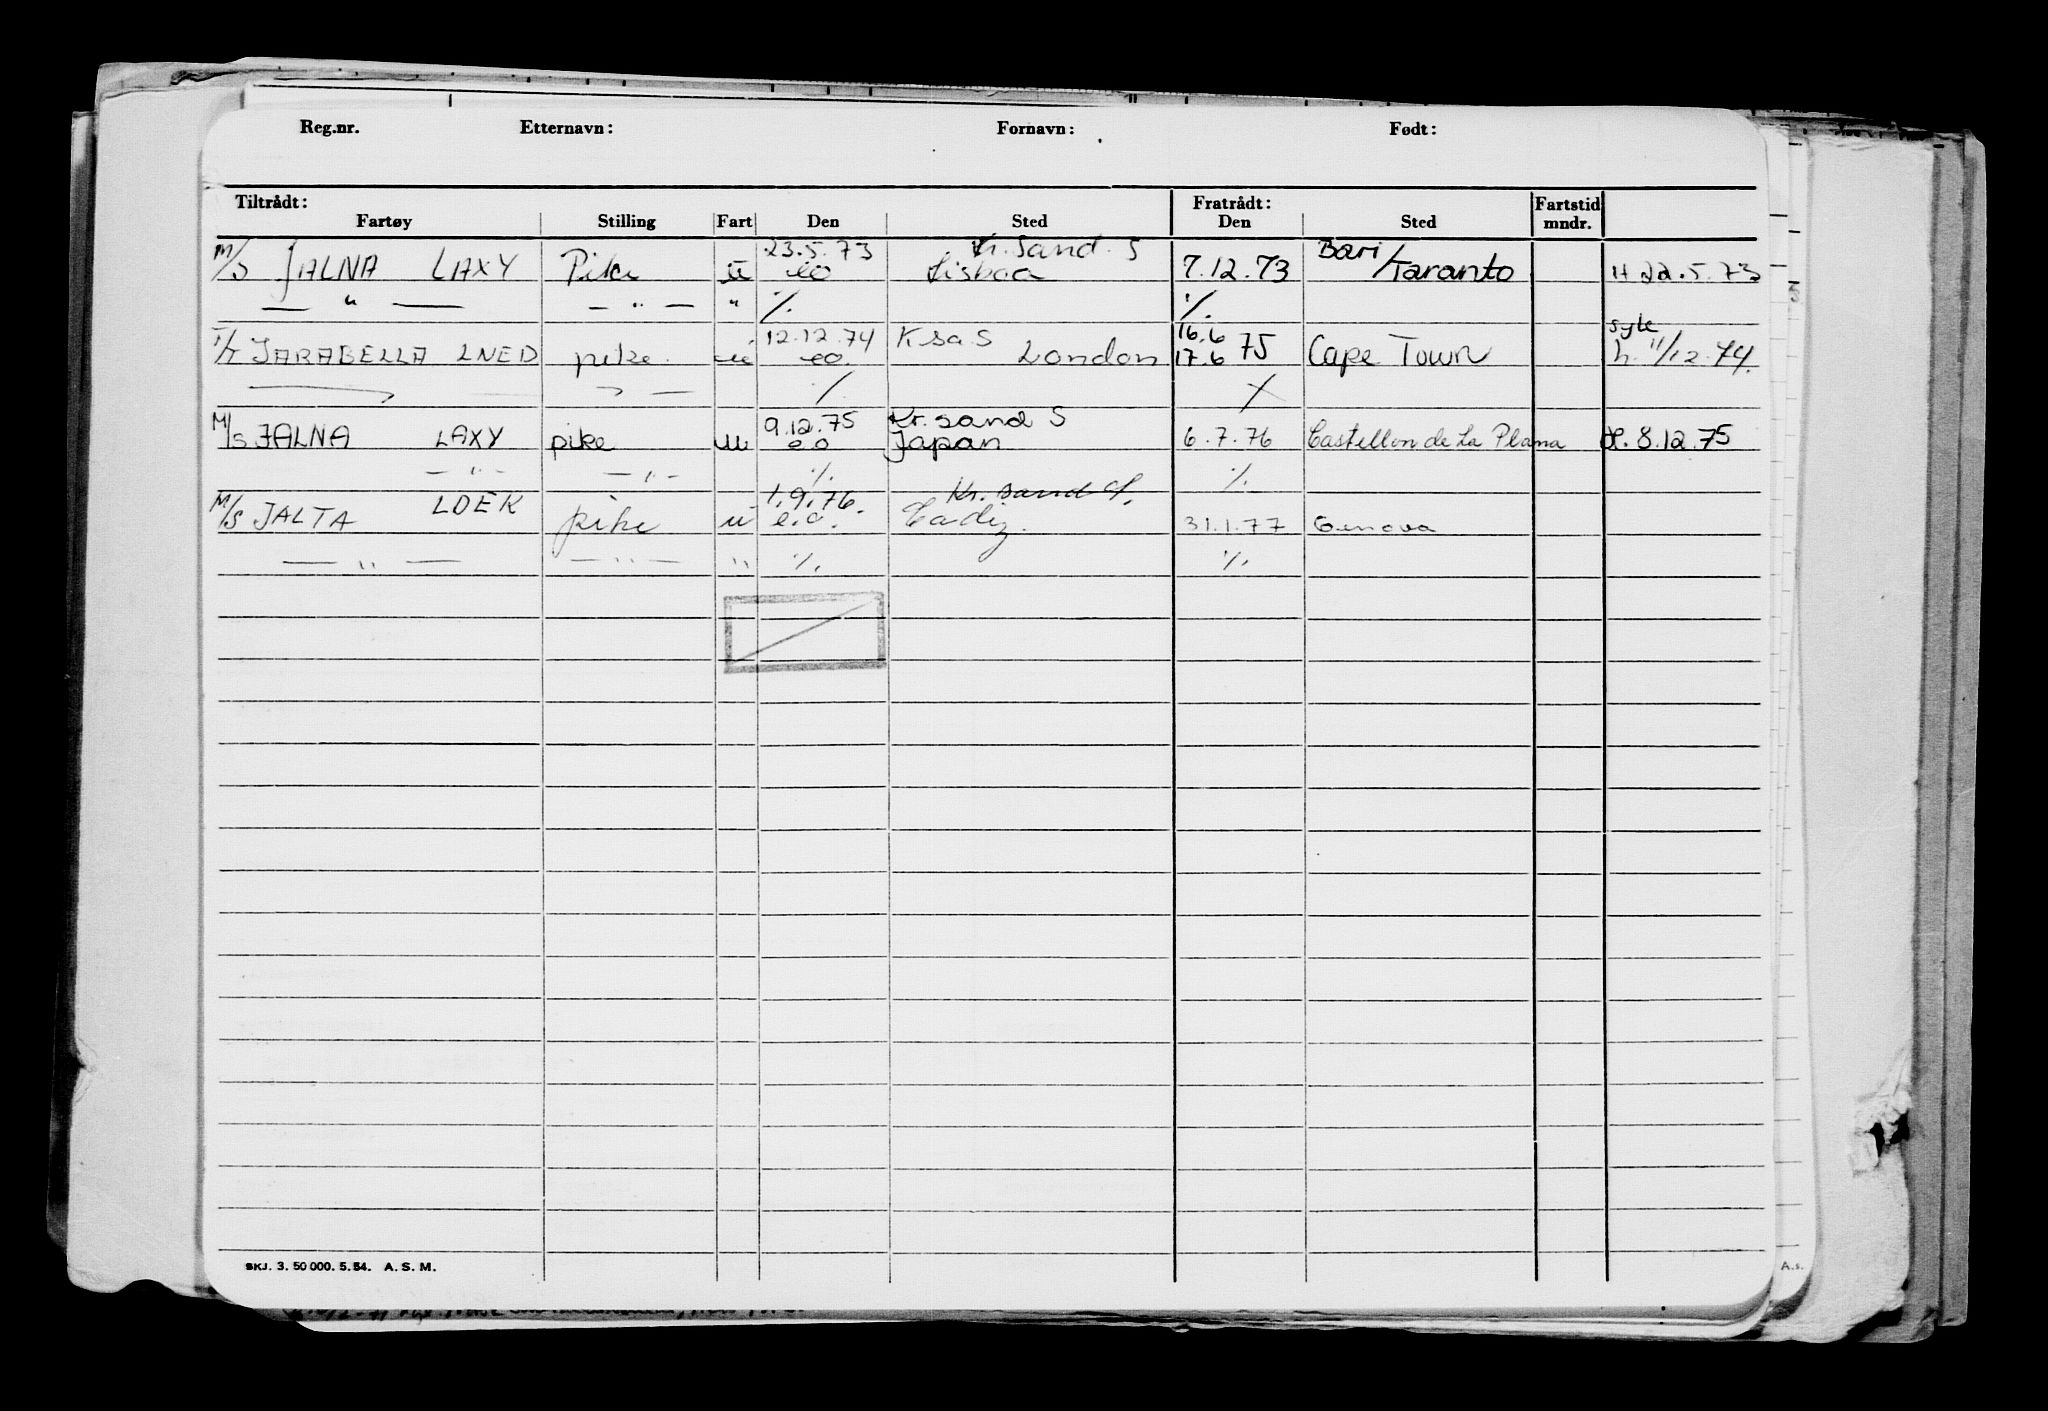 Reg.nr. Etternavn: Fornavn: Født:
Tiltrådt: Fratrådt: Fartstid
Fartøy Stilling Fart Den Sted Den Sted mndr.
23.5.73 Kr. Sand. S Bari/
M/S JALNA LAXY Pike u eo Lisboa 7.12.73 Taranto H 22.5.73
— " — — " — " %. %.
12.12.74 K sa S 16.6 syk
T/T JARABELLA LNED pike. u eo. London 17.6 75 Cape Town h. 11/12.74.
%
9.12.75 Kr. sand S
M/S JALNA LAXY pike u e.o Japan 6.7.76 Castellon de La Plana H. 8.12.75
— " — — " — %. %.
1.9.76. Kr. sand S.
M/S JALTA LDEK pike u e.o. Cadiz. 31.1.77 Genova
— " — — " — " %. %.
SKJ. 3. 50 000. 5. 54. A. S. M.
A.s.